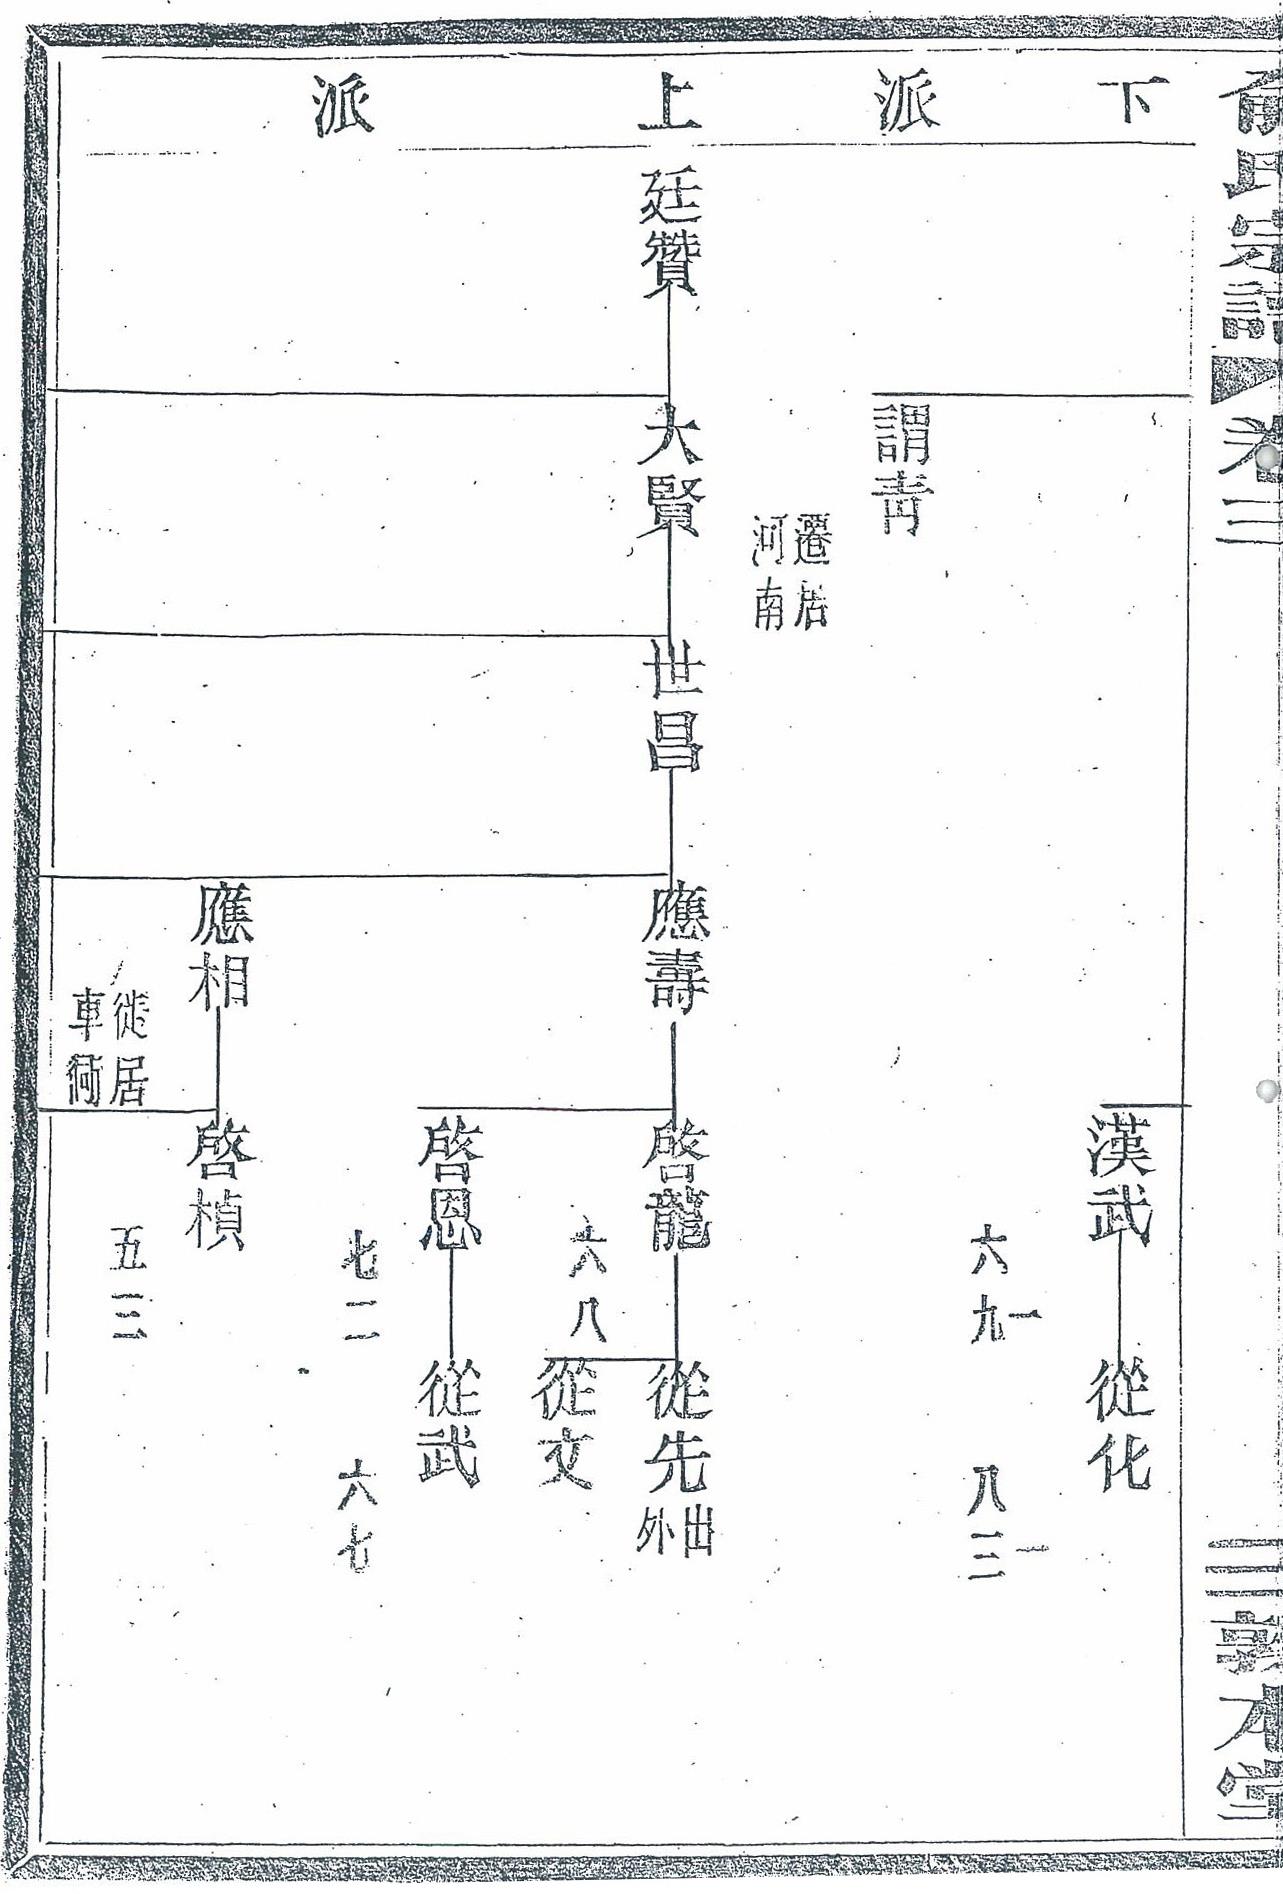 俞氏宗譜
卷三
三
敦本堂
下派
上派
謂青
遷居
河南
漢武
六九一
從化
八三一
廷贊
大賢
世昌
應壽
啓龍
六八
從先
出外
從文
啓恩
七二
從武
六七
應相
徙居
車
啓楨
五三